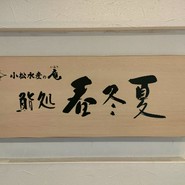 小松水産の庵
鮨処 春冬夏